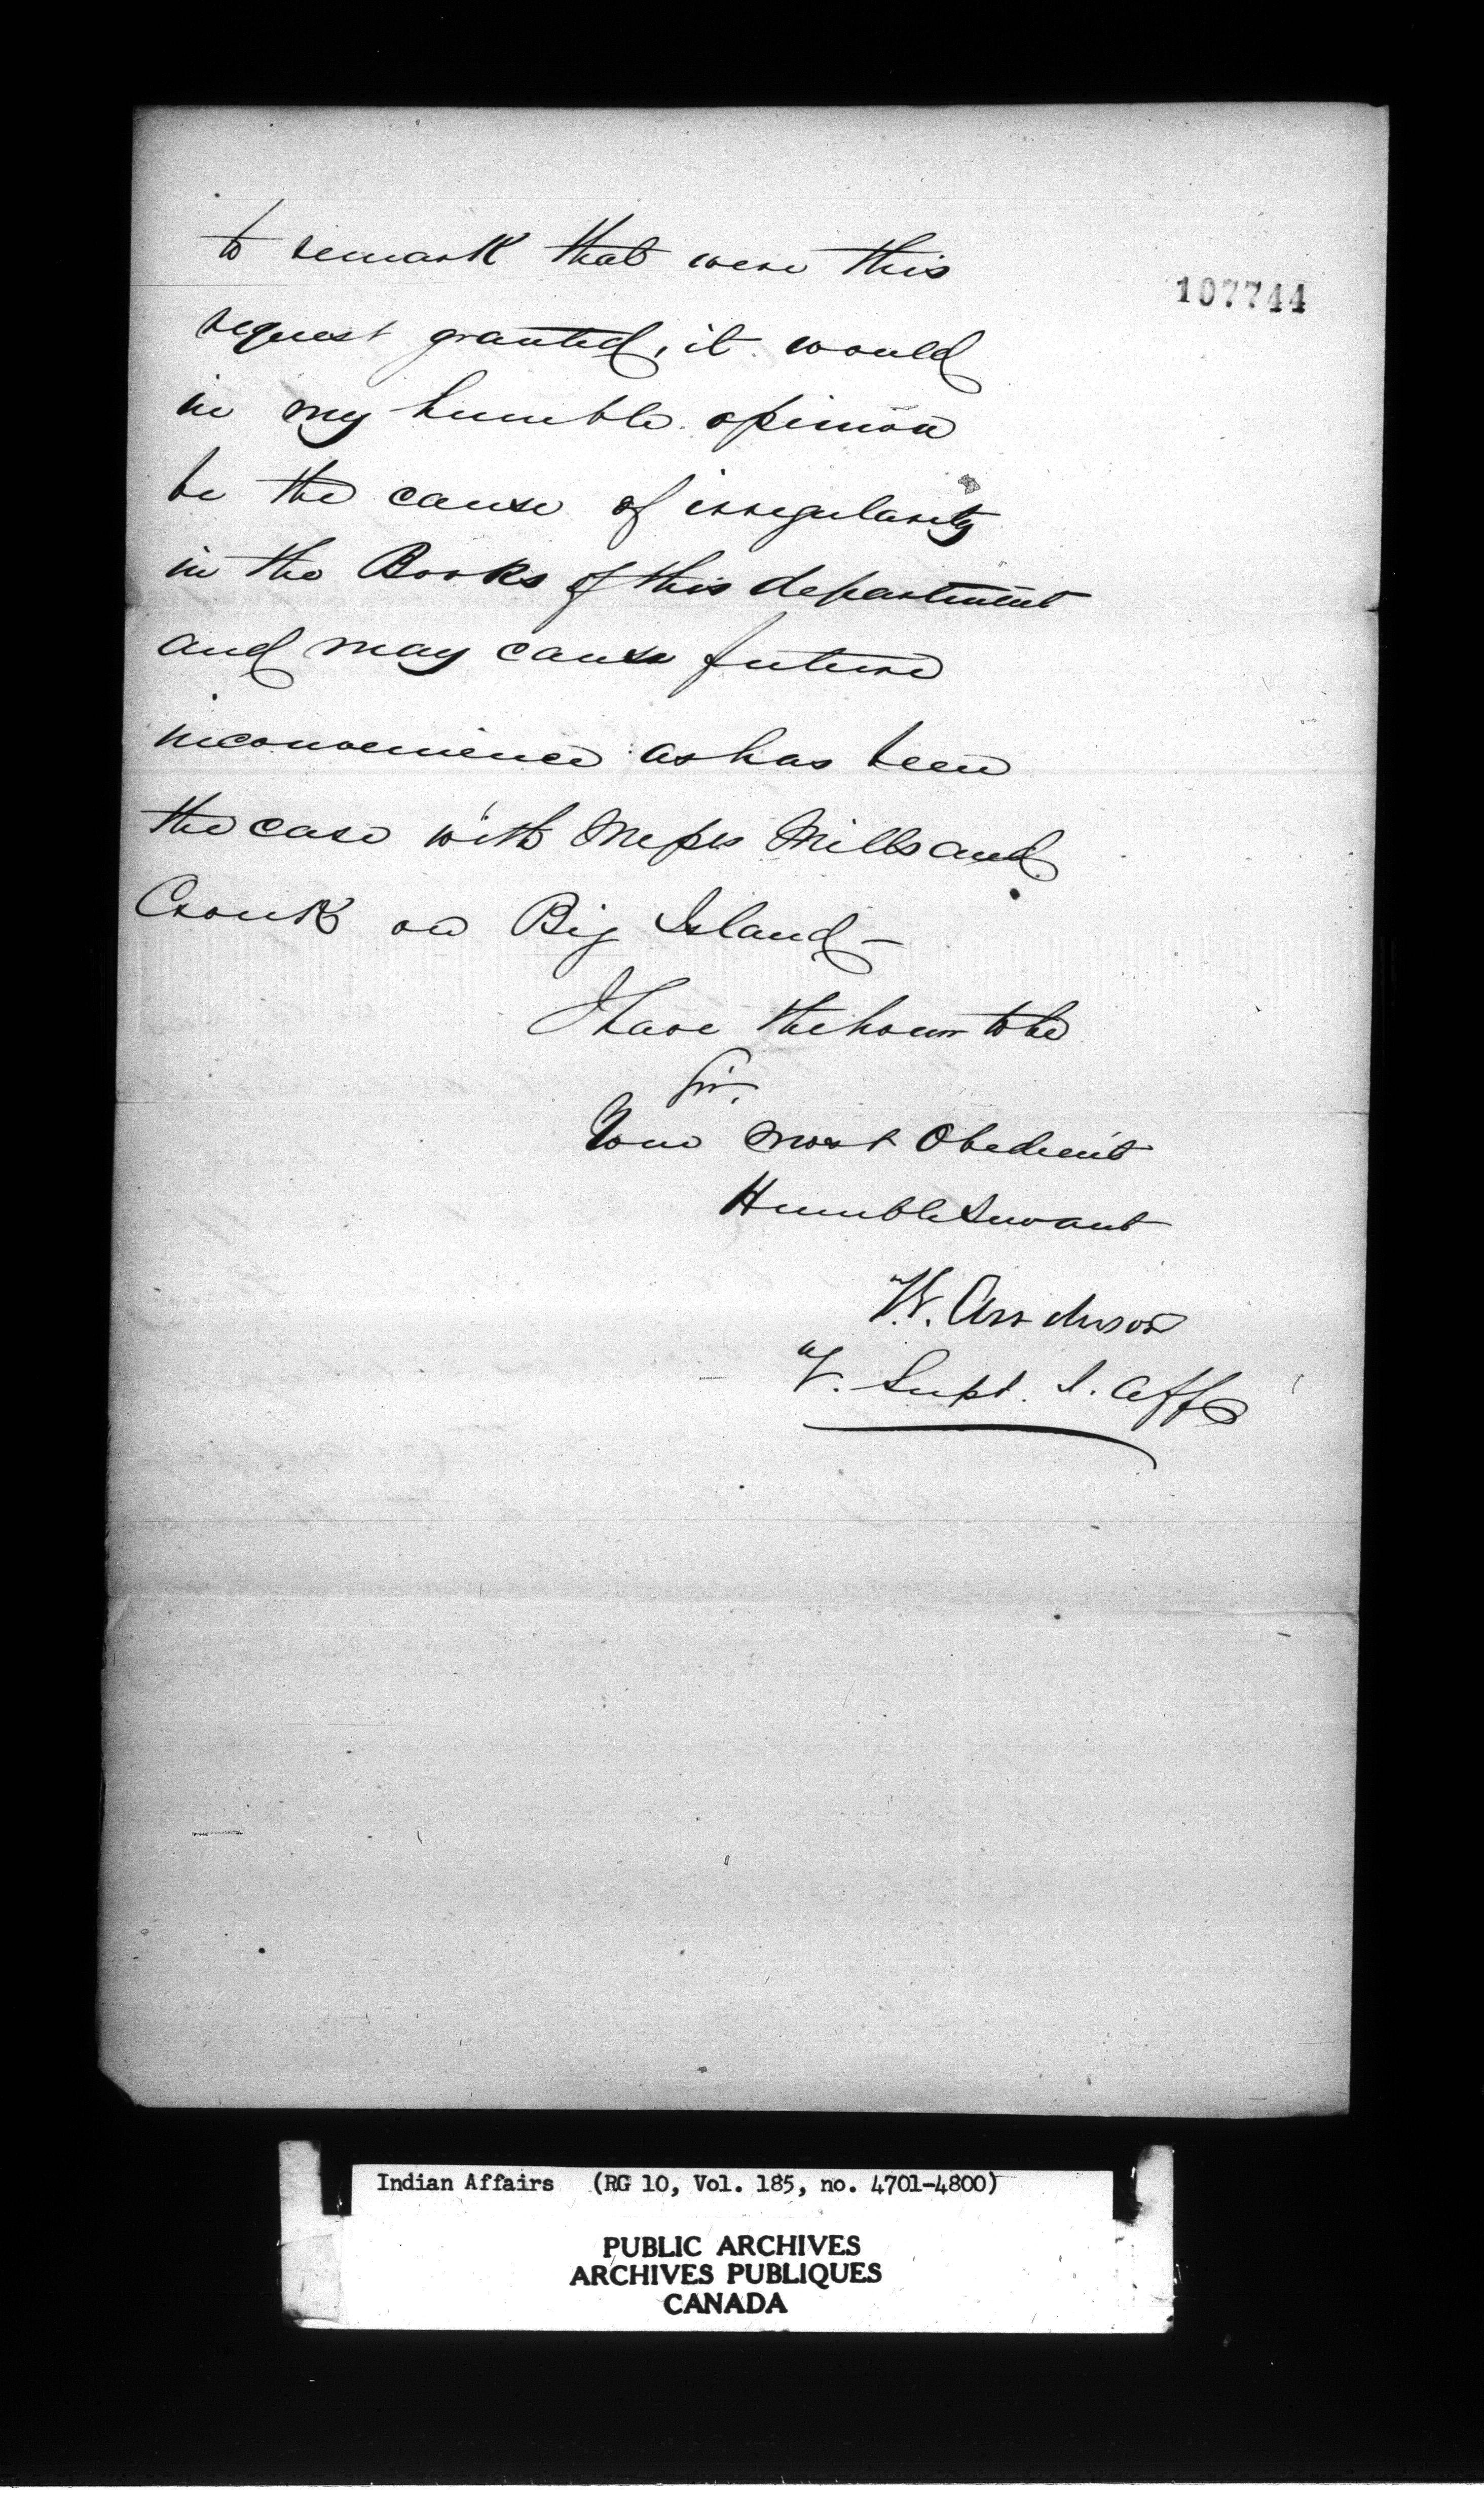 107744
to remark that were this
request granted, it would
in my humble opinion
be the cause of irregularity
in the Books of this department
and may cause future
inconvenience as has been
the case with Messrs Mills and
Cronk on Big Island –
I have the honor to be
Sir,
Your most Obedient
Humble Servant
W. Anderson
V. Supt. I. Affs
Indian Affairs (RG 10, Vol. 185, no. 4701-4800)
PUBLIC ARCHIVES
ARCHIVES PUBLIQUES
CANADA